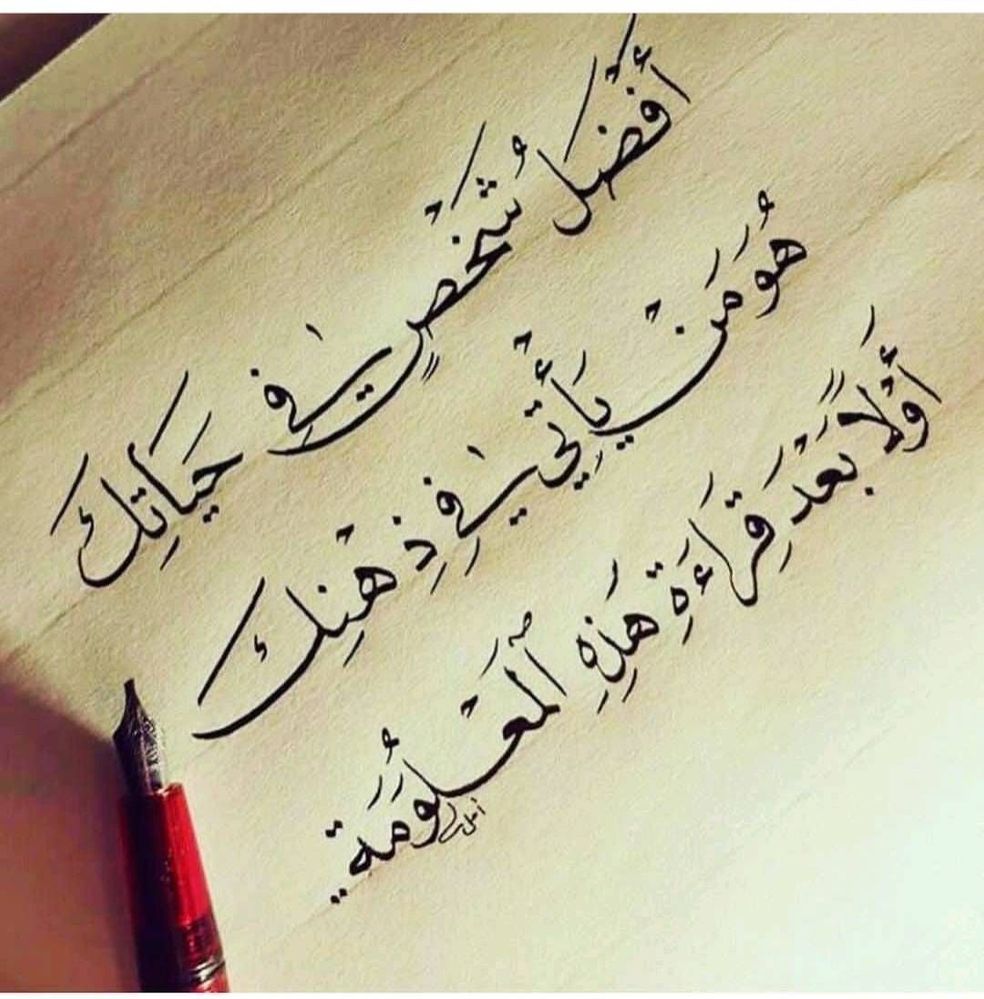 أَفْضَل شَخْصٍ فِي حَيَاتِك
هُوَ مَنْ يَأْتِي فِي ذِهْنِك
أَوَّلاً بَعْدَ قِرَاءَةِ هَذِهِ ٱلْمَعْلُومَة..